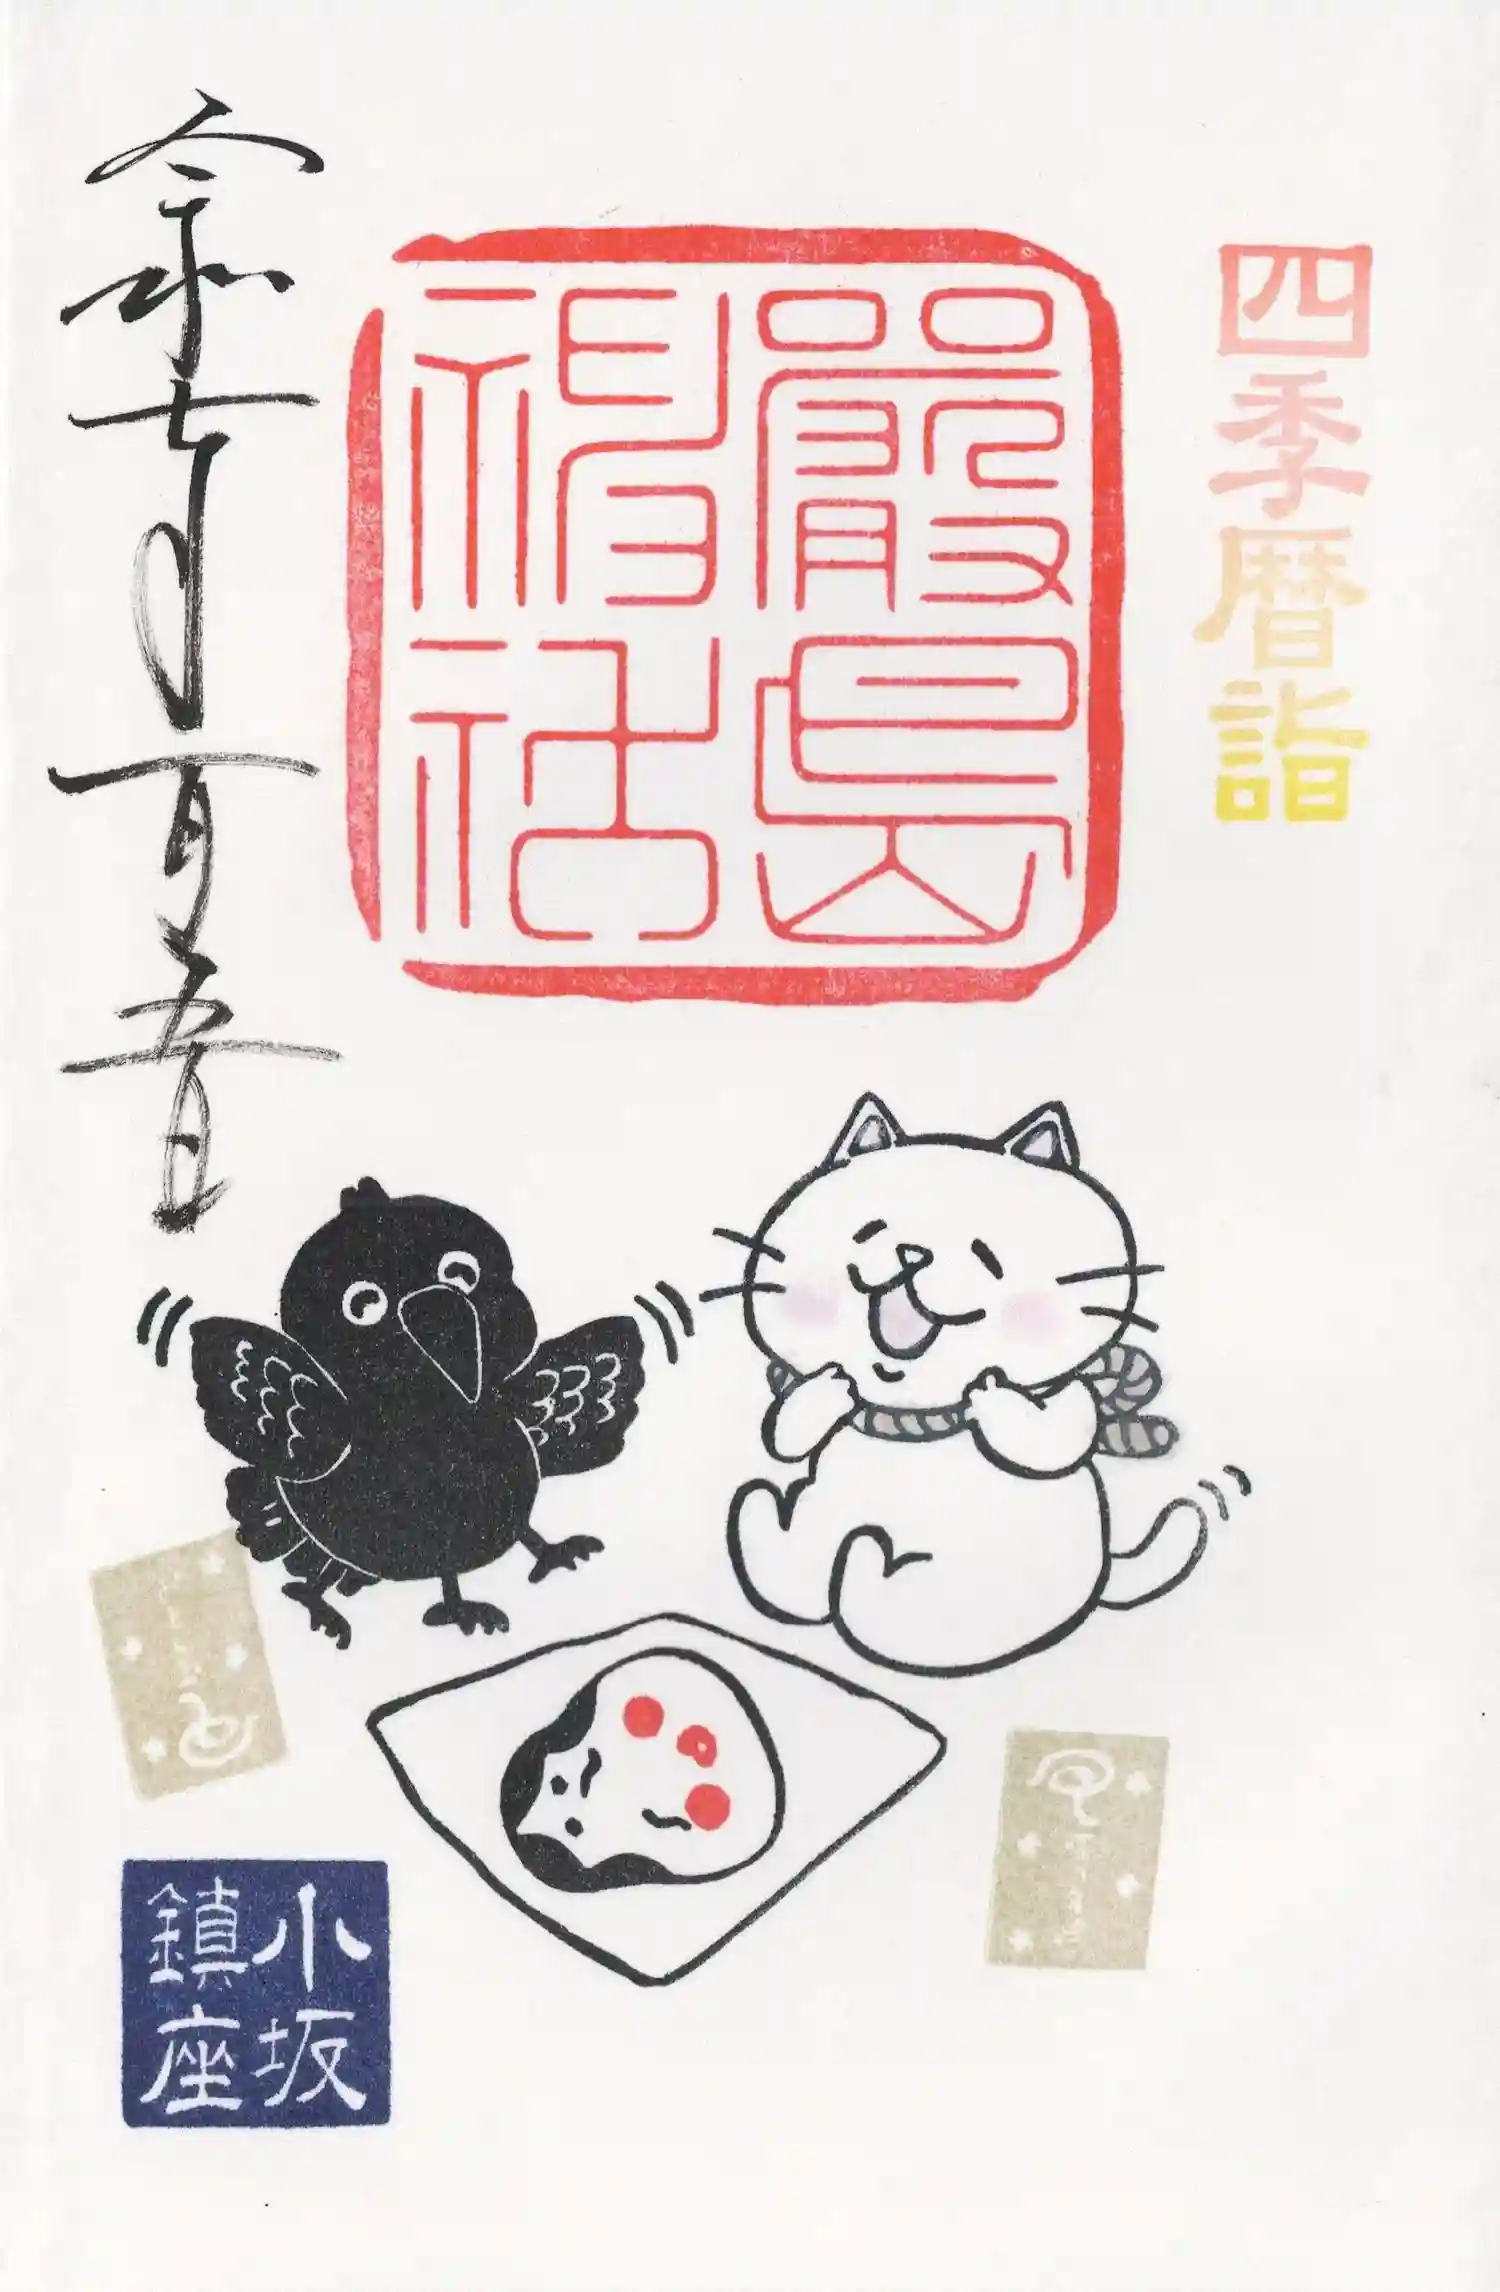 四季暦詣
嚴島
神社
令和七年一月五日
小坂
鎮座